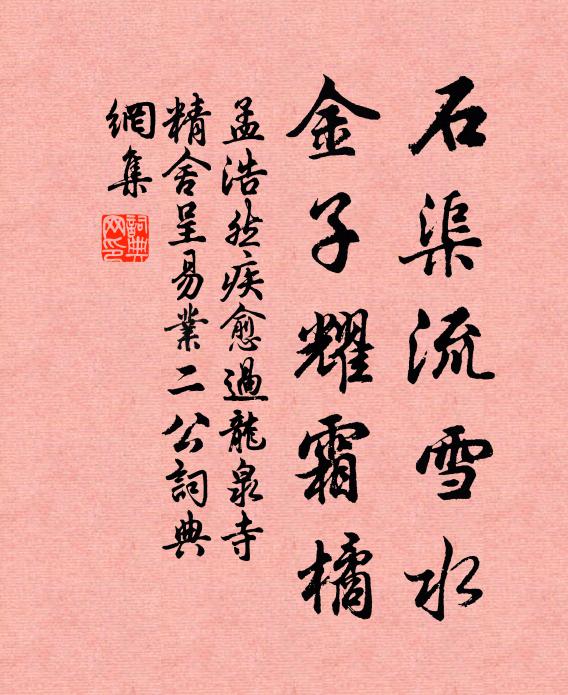 石渠流雪水
金子耀霜橘
孟浩然疾愈過龍泉寺
精舍呈易業二公詞典
網集
詞典網印